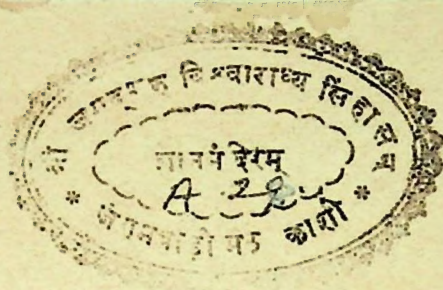 श्री जगद्गुरु विश्वाराध्य सिंहासन
ज्ञानमंदिरम्
A 29
जंगमवाड़ी मठ काशी